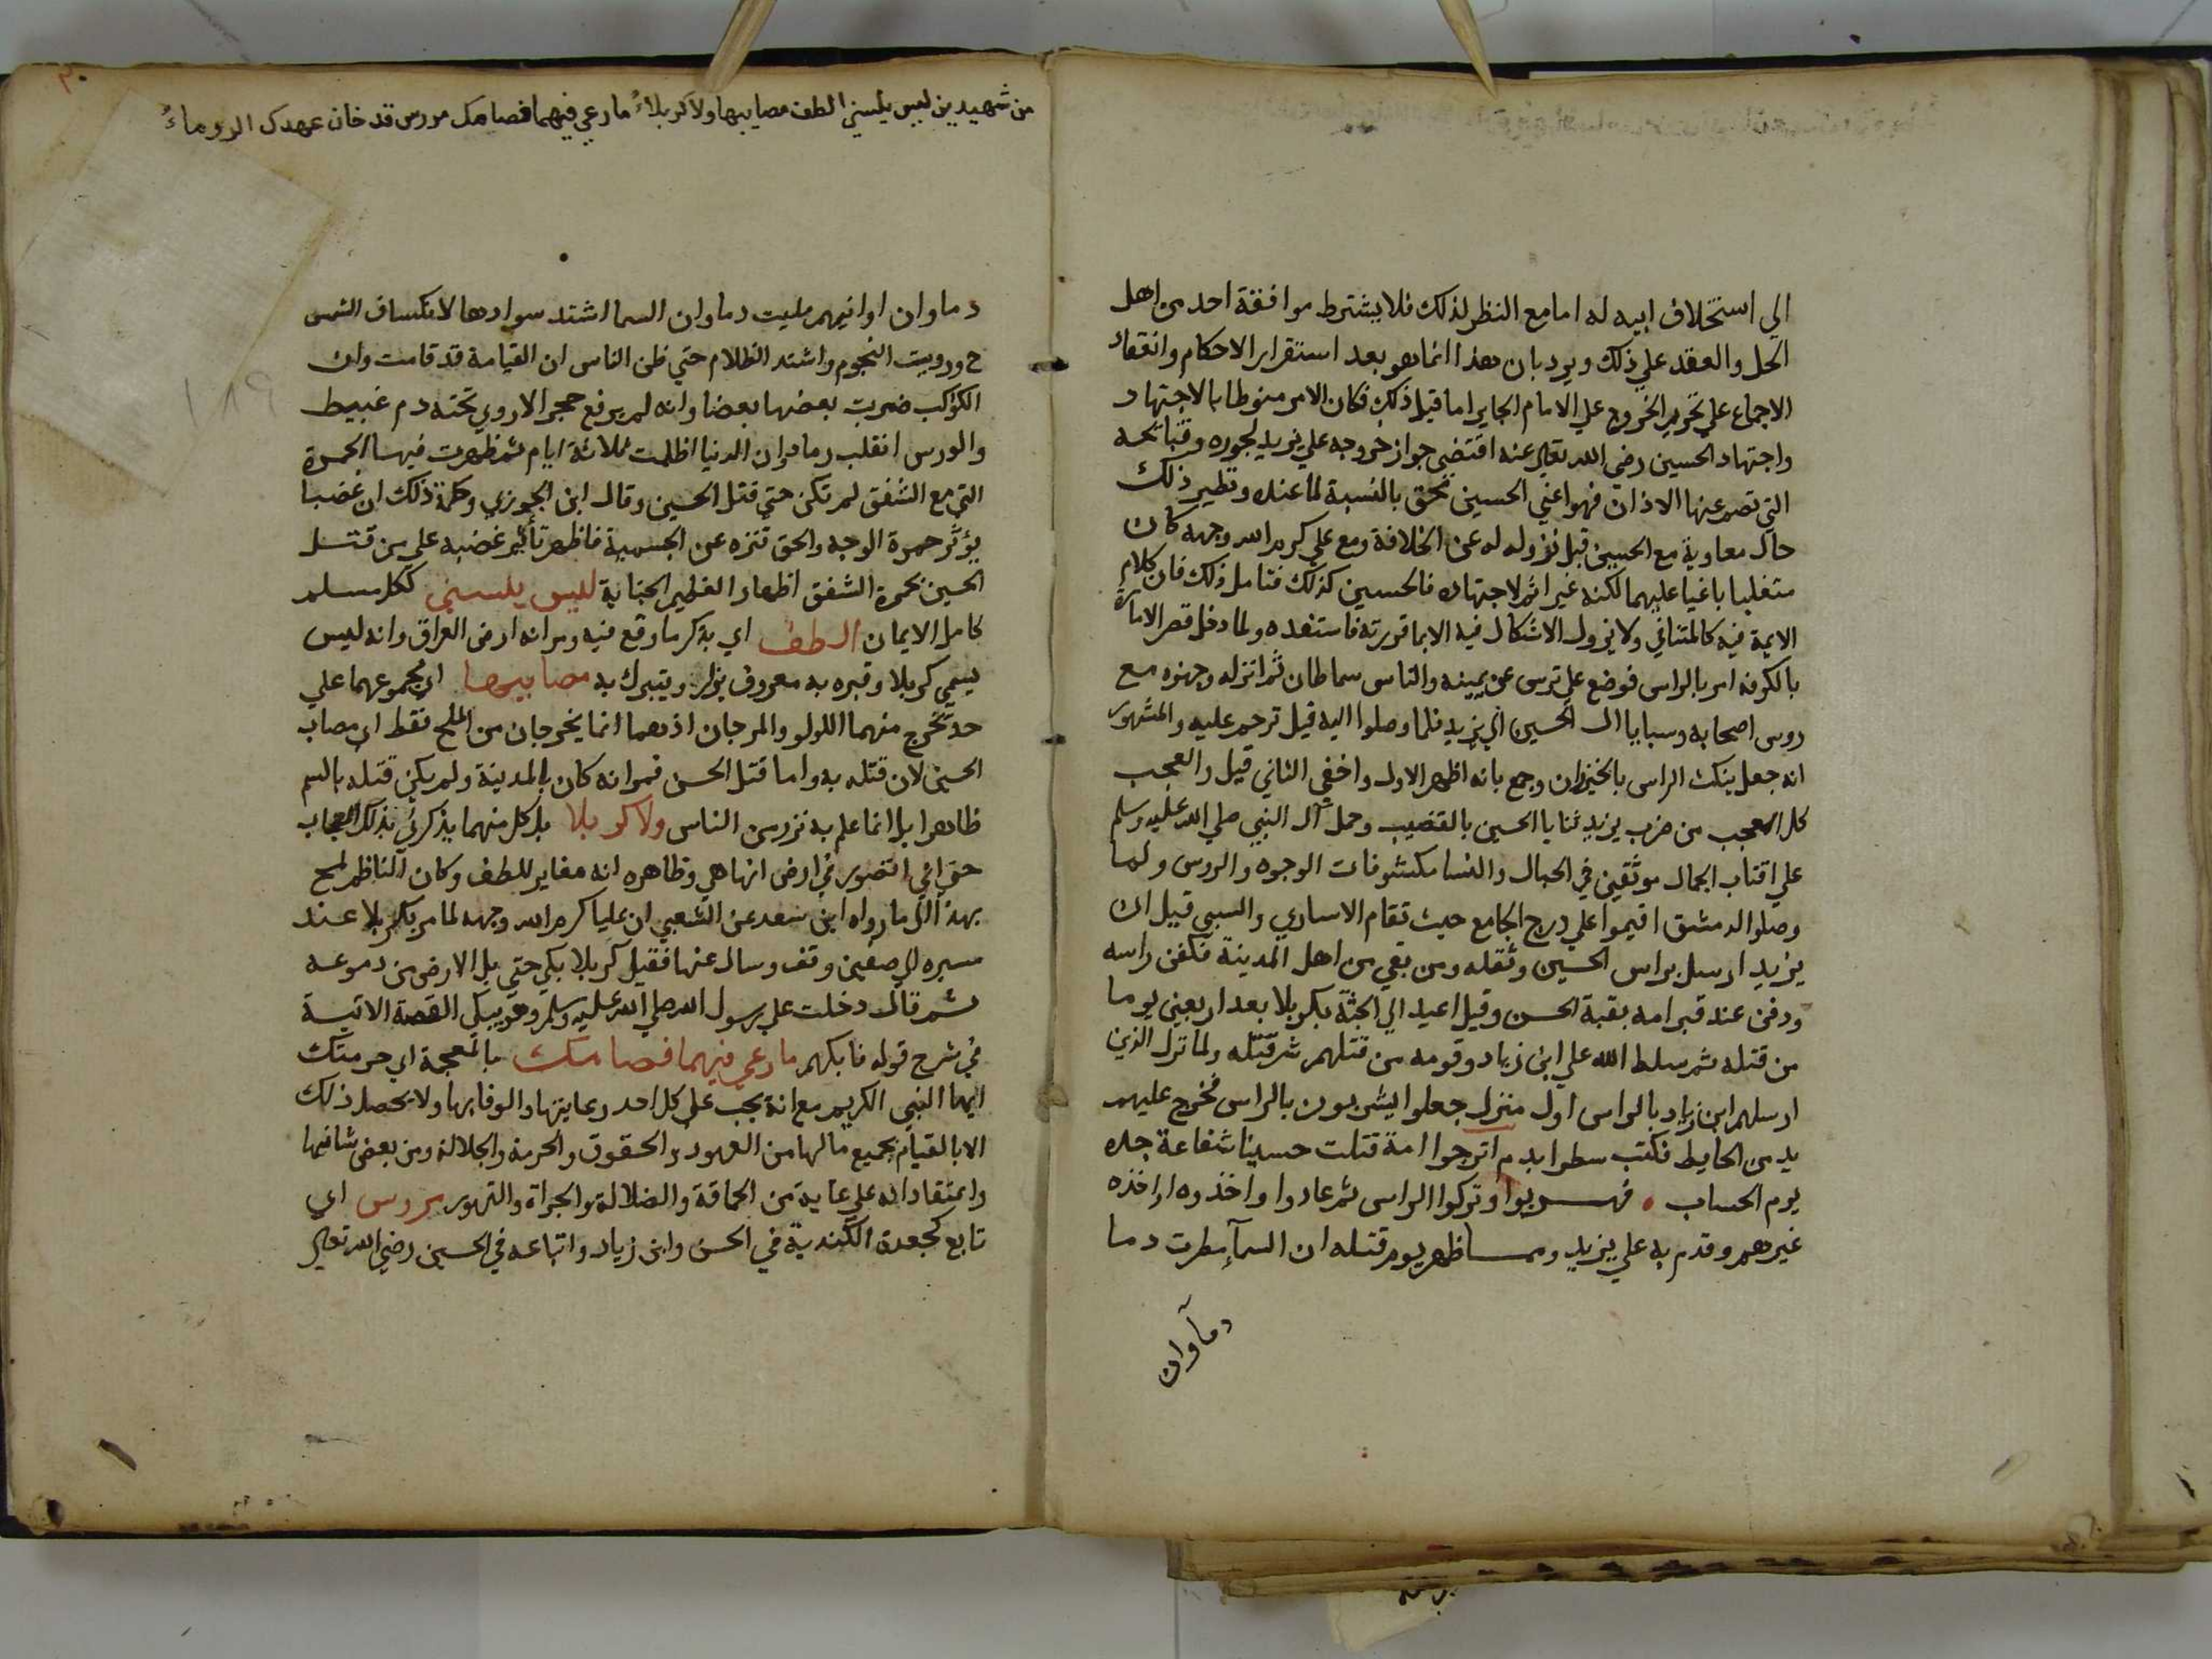 الي استخلاف ابيه له اما مع النظر لذلك فلا يشترط موافقة احد من اهل
الحل والعقد علي ذلك ويرد بان هذا انما هو بعد استقرار الاحكام وانعقاد
الاجماع علي تحريم الخروج علي الامام الجاير اما قبل ذلك فكان الامر منوطا بالاجتهاد
واجتهاد الحسين رضي الله تعالي عنه اقتضي جواز خروجه علي يزيد لجوره وقبائحه
التي تصم عنها الاذان فهو اعني الحسين محق بالنسبة لما عنده ونظير ذلك
حال معاوية مع الحسن قبل نزوله له عن الخلافة ومع علي كرم الله وجهه كان
متغلبا باغيا عليهما لكنه غير اثم لاجتهاده فالحسين كذلك فتامل ذلك فان كلام
الايمة فيه كالمتنافي ولا يزول الاشكال فيه الا بما قررته فاستفده ولما دخل قصر الامارة
بالكوفة امر بالراس فوضع علي ترس عن يمينه والناس سماطان ثم انزله وجهزه مع
روس اصحابه وسبايا ال الحسين الي يزيد فلما وصلوا اليه قيل ترحم عليه والمشهور
انه جعل ينكت الراس بالخيزران وجمع بانه اظهر الاول واخفي الثاني قيل والعجب
كل العجب من ضرب يزيد ثنايا الحسين بالقضيب وحمل آل النبي صلي الله عليه وسلم
علي اقتاب الجمال موثقين في الحبال والنسا مكشوفات الوجوه والروس ولما
وصلوا لدمشق اقيموا علي درج الجامع حيث تقام الاساري والسبي قيل ان
يزيد ارسل براس الحسين وثقله ومن بقي من اهل المدينة فكفن راسه
ودفن عند قبر امه بقبة الحسن وقيل اعيد الي الجثة بكربلا بعد اربعين يوما
من قتله ثم سلط الله علي ابن زياد وقومه من قتلهم شر قتله ولما نزل الذين
ارسلهم ابن زياد بالراس اول منزل جعلوا يشربون بالراس فخرج عليهم
يد من الحايط فكتب سطرا بدم اترجوا امة قتلت حسينا شفاعة جده
يوم الحساب فهربوا وتركوا الراس ثم عادوا واخذوه او اخذه
غيرهم وقدم به علي يزيد ومما ظهر يوم قتله ان السمآ مطرت دما
دمآ وان
٣٠
من شهيدين ليس ينسيني الطف مصابيهما ولا كربلاءُ ما رعي فيهما فصامك مروس قد خان عهدك الروساءُ
دما وان اوانيهم مليت دما وان السما اشتد سوادها لانكساف الشمس
ح ورويت النجوم واشتد الظلام حتي ظن الناس ان القيامة قد قامت وان
الكواكب ضربت بعضها بعضا وانه لم يرفع حجر الا روي تحته دم غبيط
والورس انقلب رمادا وان الدنيا اظلمت ثلاثة ايام ثم ظهرت فيها الحمرة
التي مع الشفق لم تكن حتي قتل الحسين وقال ابن الجوزي وحكمة ذلك ان غضبنا
يؤثر حمرة الوجه والحق تنزه عن الجسمية فاظهر تأثير غضبه علي من قتل
الحسين بحمرة الشفق اظهارا لعظيم الجناية ليس ينسيني ككل مسلم
كامل الايمان الطف اي بذكر ما وقع فيه ومر انه ارض العراق وانه ليس
يسمي كربلا وقبره به معروف يزار ويتبرك به مصابيهما اي مجموعهما علي
حد تخرج منهما اللولو والمرجان اذ هما انما يخرجان من الملح فقط اي مصاب
الحسين لان قتله به واما قتل الحسن فمر انه كان بالمدينة ولم يكن قتله بالسم
ظاهرا بل انما علم به نزر من الناس ولا كربلا بل كل منهما يذكرني بذلك المصاب
حتي اني اتصور في ارض انها هي وظاهره انه مغاير للطف وكان الناظم لمح
بهذا الي ما رواه ابن سعد عن الشعبي ان عليا كرم الله وجهه لما مر بكربلا عند
مسيره الي صفين وقف وسال عنها فقيل كربلا بكي حتي بل الارض من دموعه
ثم قال دخلت علي رسول الله صلي الله عليه وسلم وهو يبكي القصة الاتية
في شرح قوله فابكهم ما رعي فيهما فصامك بالمعجمة اي حرمتك
ايها النبي الكريم مع انه يجب علي كل احد رعايتها والوفا بها ولا يحصل ذلك
الا بالقيام بجميع ما لها من العهود والحقوق والحرمة والجلالة ومن بعض شانيها
واعتقاد انه علي غاية من الحماقة والضلالة والجراة والتهور مروس اي
تابع كجعدة الكندية في الحسن وابن زياد واتباعه في الحسين رضي الله تعالي